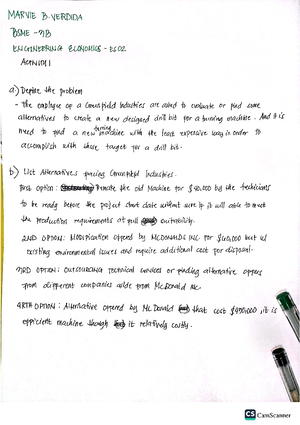 MARVIE B. VERDIDA
BSME - 3B
ENGINEERING ECONOMICS - ES02
ACTIVITY 1
a) Define the problem
- The employee of a Crownfield Industries are asked to evaluate or find some
alternatives to create a new designed drill bit for a turning machine. And it is
need to find a new turning machine with the least expensive way in order to
accomplish with those target for a drill bit.
b) List Alternatives facing Crownfield Industries.
First option: the old Machine for $40,000 by the technicians
to be ready before the project start date without sure if it will able to meet
the production requirements at full suitability.
2ND OPTION: Modification offered by MCDONALDS INC for $60,000 but has
existing environmental issues and require additional cost for disposal.
3RD OPTION: Outsourcing technical services or finding alternative offers
from different companies aside from McDonald Inc.
4RTH OPTION: Alternative offered by McDonald that cost $450,000, it is
efficient machine though it relatively costly.
CS CamScanner